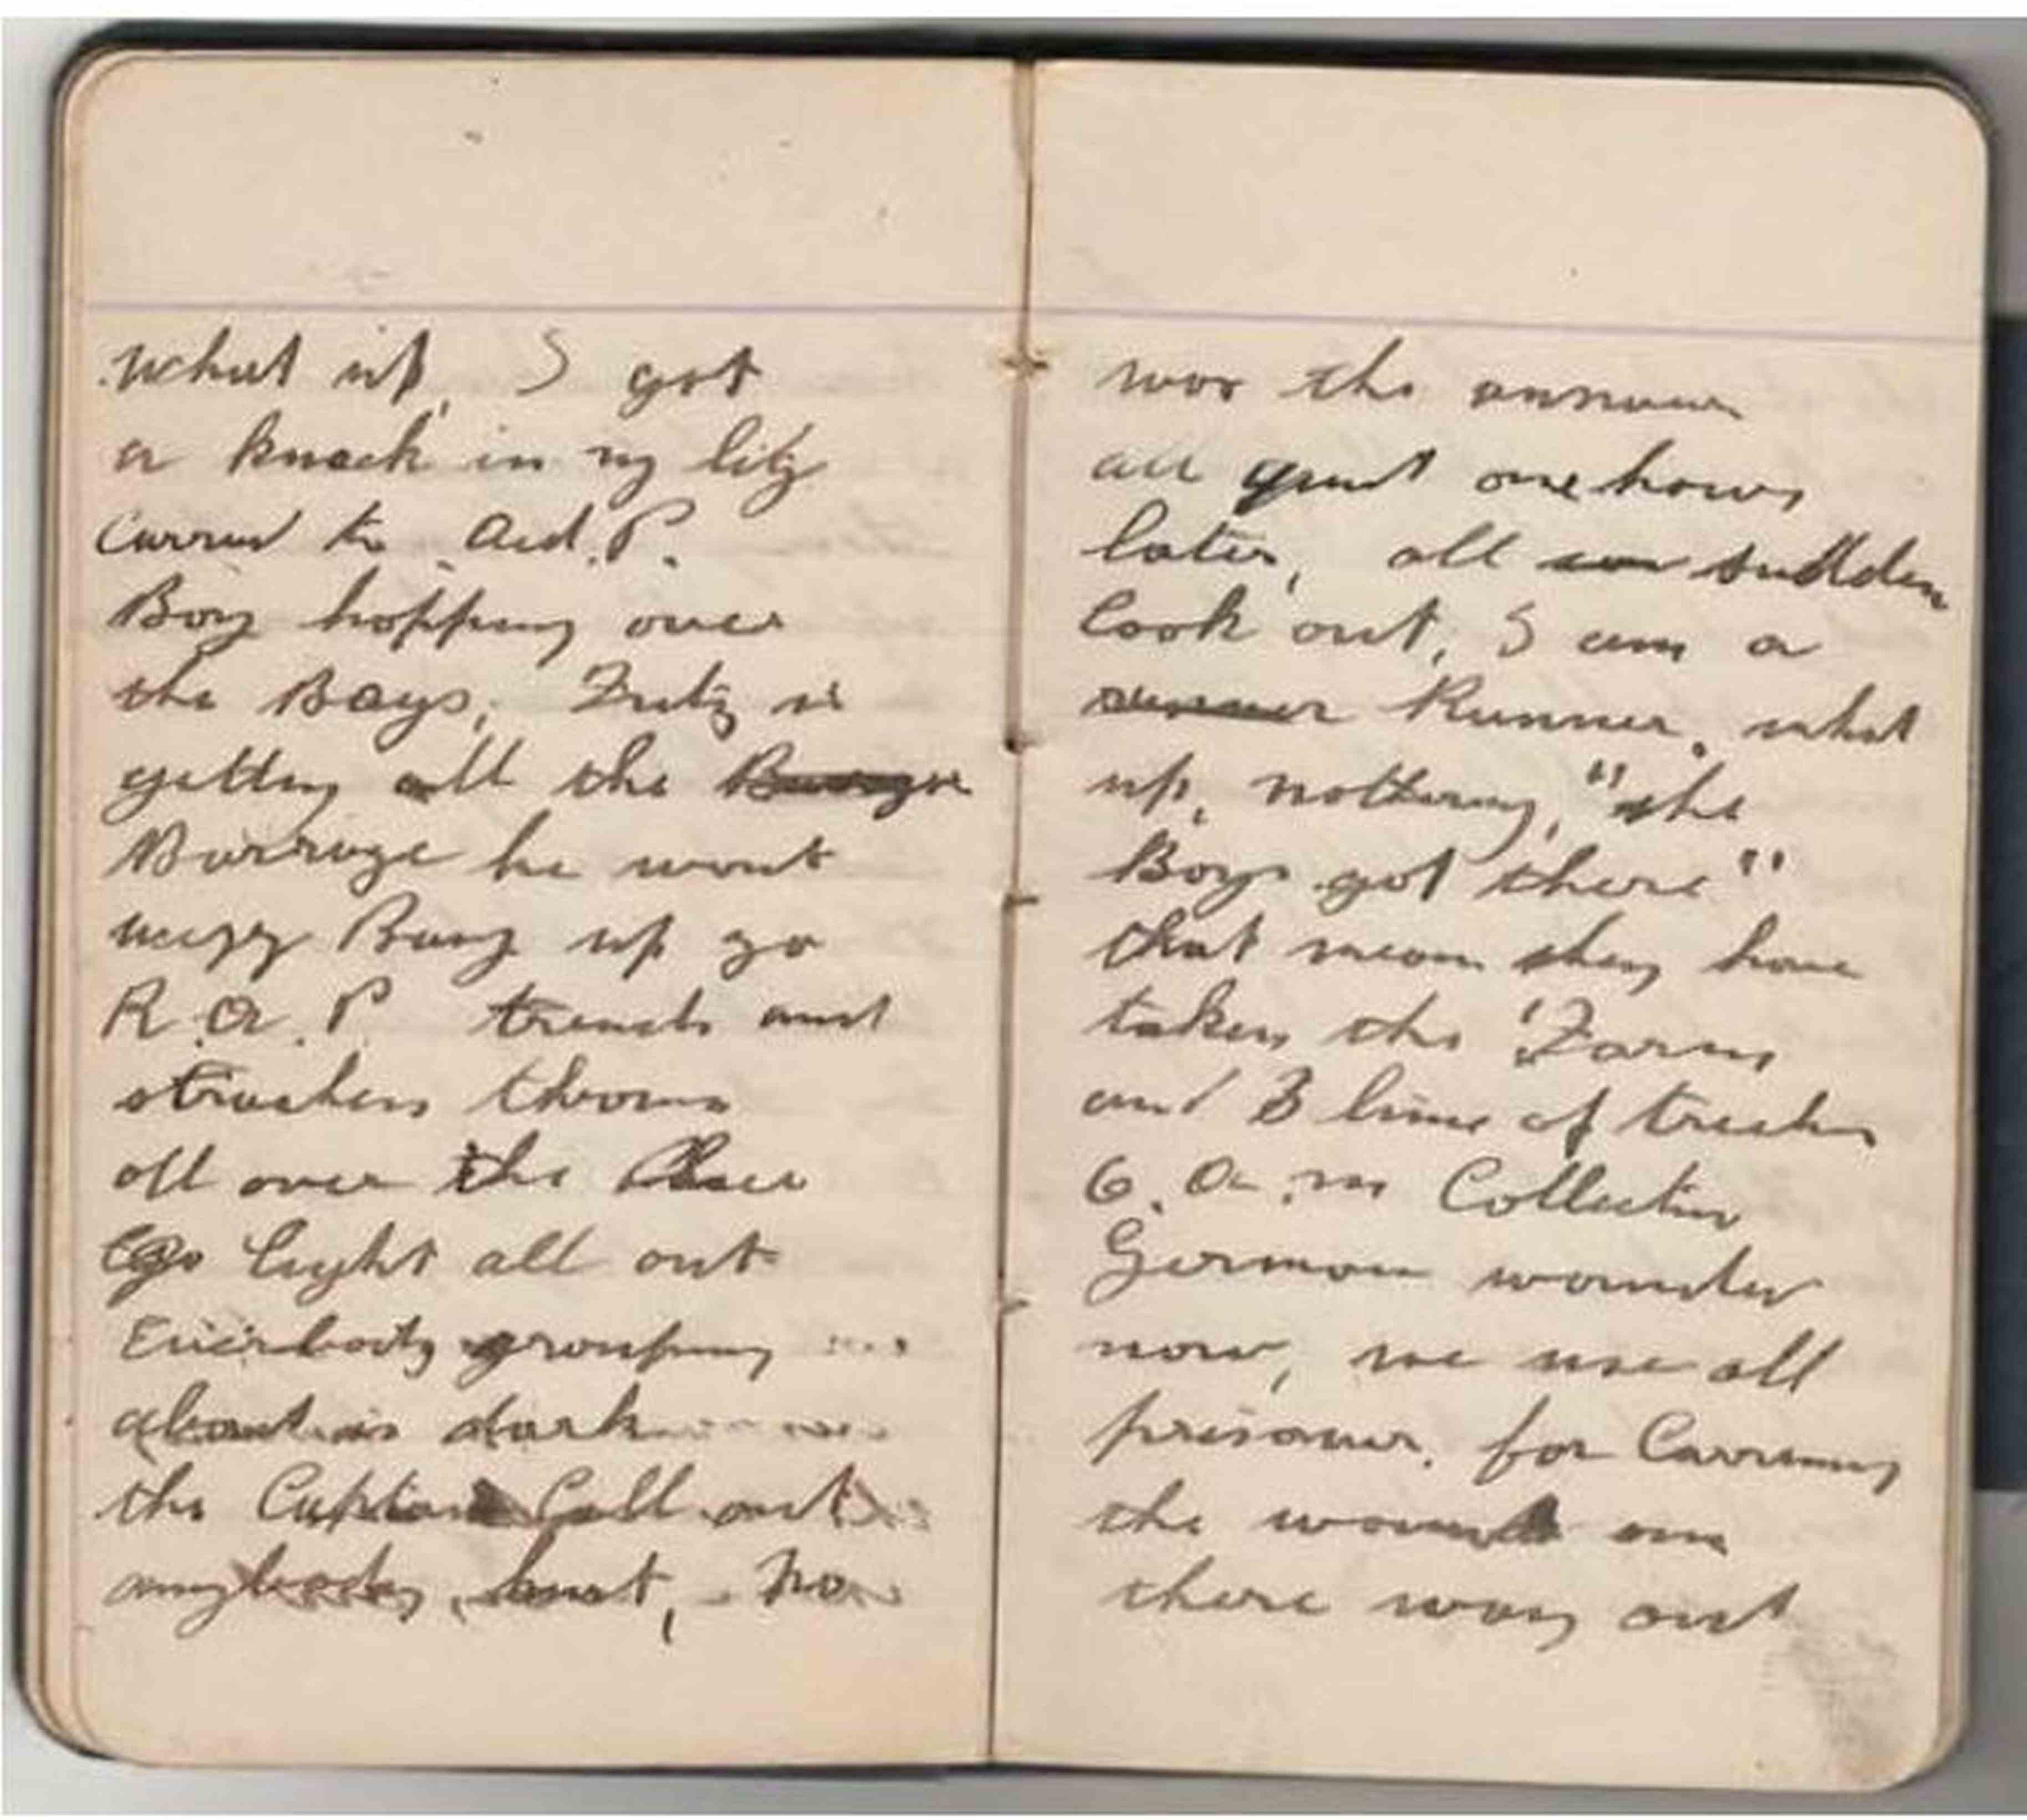 what up, I got
a knock in my leg
Carried to Aid. P.
Boy hopping over
the Bags, Fritz is
getting all the
Barrage he wont
Bang up go
R.A.P trench and
strachers thrown
all over the place
light all out
Everbody grouping
about in dark
the Captain Call out
anybody hurt, No
was the answer
all quiet one hours
later, all sudden
look out, I am a
runner Runner. what
up, nothing, "the
Boys got there"
that mean they have
taken the Farm
and 3 line of treches
6.a.m Collectin
German wounded
now, we use all
prisoner. for Carrying
the wounds on
there way out